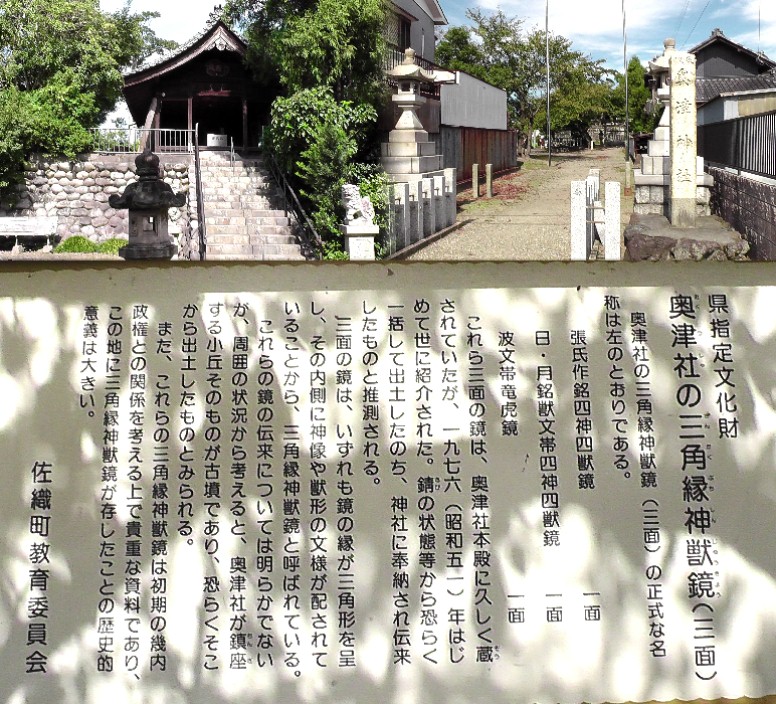 奥津神社
県指定文化財
奥津社の三角縁神獣鏡（三面）
奥津社の三角縁神獣鏡（三面）の正式な名
称は左のとおりである。
張氏作銘四神四獣鏡　一面
日・月銘獣文帯四神四獣鏡　一面
波文帯竜虎鏡　一面
これら三面の鏡は、奥津社本殿に久しく蔵
されていたが、一九七六（昭和五一）年はじ
めて世に紹介された。錆の状態等から恐らく
一括して出土したのち、神社に奉納され伝来
したものと推測される。
三面の鏡は、いずれも鏡の縁が三角形を呈
し、その内側に神像や獣形の文様が配されて
いることから、三角縁神獣鏡と呼ばれている。
これらの鏡の伝来については明らかでない
が、周囲の状況から考えると、奥津社が鎮座
する小丘そのものが古墳であり、恐らくそこ
から出土したものとみられる。
また、これらの三角縁神獣鏡は初期の畿内
政権との関係を考える上で貴重な資料であり、
この地に三角縁神獣鏡が存したことの歴史的
意義は大きい。
佐織町教育委員会